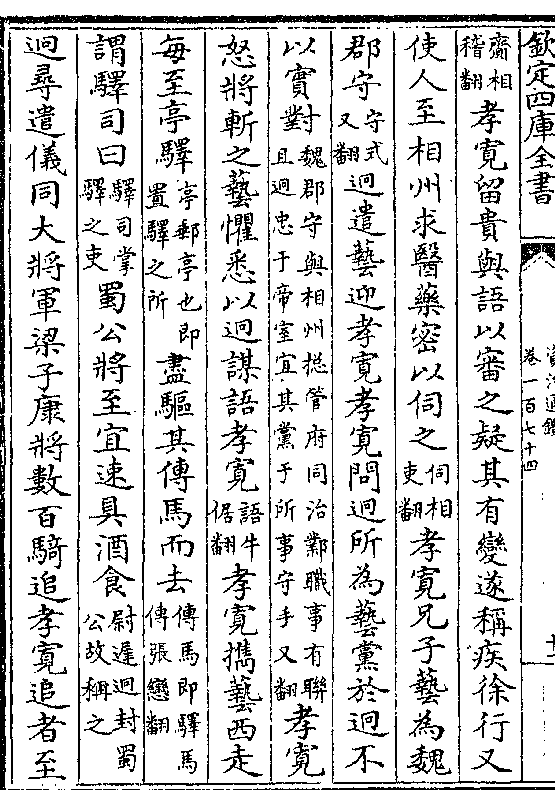 欽定四庫全書
資治通鑑
卷一百七十四
齎相稽翻孝寛留貴與語以審之疑其有變遂稱疾徐行又
使人至相州求醫藥密以伺之伺相吏翻孝寛兄子藝為魏
郡守守式又翻迥遣藝迎孝寛孝寛問迥所為藝黨於迥不
以實對魏郡守與相州揔管府同治鄴職事有聯且迥忠于帝室宜其黨于所事守手又翻孝寛
怒將斬之藝懼悉以迥謀語孝寛語牛倨翻孝寛擕藝西走
每至亭驛亭郵亭也即置驛之所盡驅其傳馬而去傳馬即驛馬傳張戀翻
謂驛司曰驛司掌驛之吏蜀公將至宜速具酒食尉遲迥封蜀公故稱之
迥尋遣儀同大將軍梁子康將數百騎追孝寛追者至